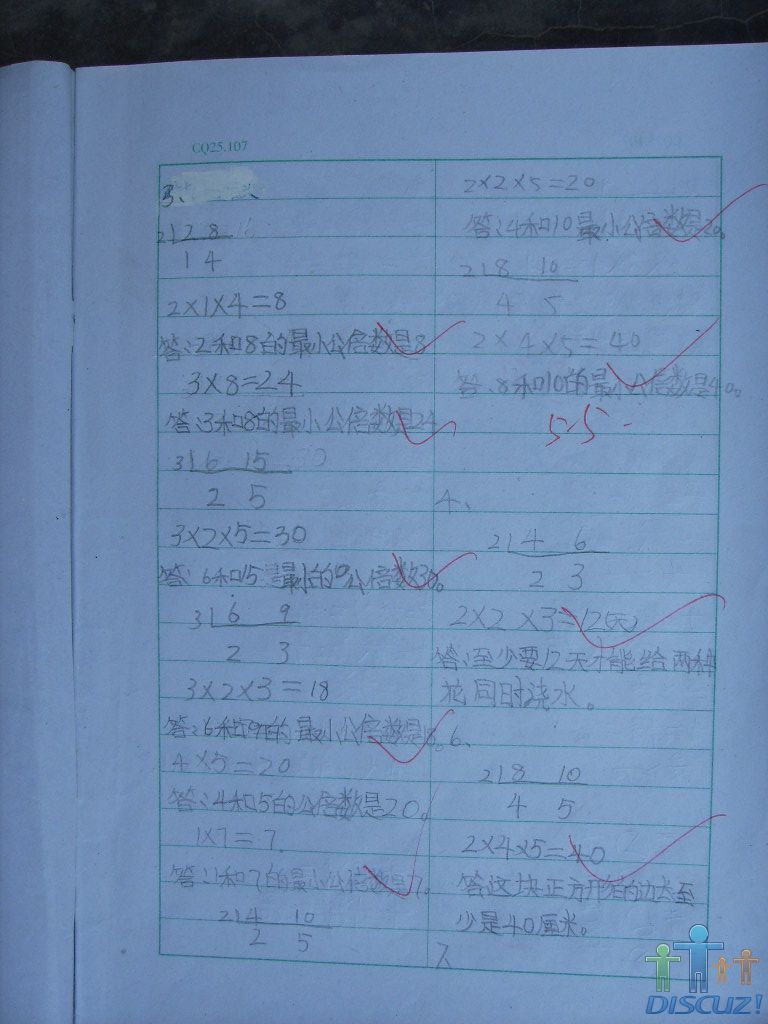 CQ25.107
3、
2 2 8
1 4
2×1×4=8
答:2和8的最小公倍数是8
3×8=24
答:3和8的最小公倍数是24
3 6 15
2 5
3×2×5=30
答:6和15最小的公倍数30。
3 6 9
2 3
3×2×3=18
答:6和9的最小公倍数是18。
4×5=20
答:4和5的公倍数是20。
1×7=7.
答:1和7的最小公倍数是7。
2 4 10
2 5
2×2×5=20
答:4和10最小公倍数是20。
2 8 10
4 5
2×4×5=40
答:8和10的最小公倍数是40。
5.5
4、
2 4 6
2 3
2×2×3=12(天)
答:至少要12天才能给两种
花同时浇水。
6、
2 8 10
4 5
2×4×5=40
答这块正方形的边长至
少是40厘米。
DISCUZ!